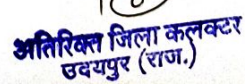 अतिरिक्त जिला कलक्टर
उदयपुर (राज.)